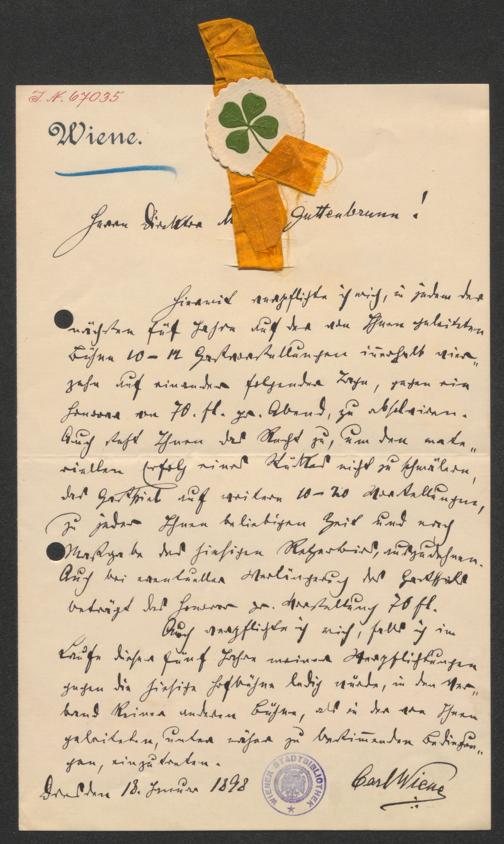 J. N. 67035
Wiene.
Herrn Direktor M Guttenbrunn!
Hiermit verpflichte ich mich, in jedem der
nächsten fünf Jahre auf der von Ihnen geleiteten
Bühne 10–12 Gastvorstellungen innerhalb vier-
zehn auf einander folgender Tage, gegen ein
Honorar von 70. fl. pr. Abend, zu absolviren.
Auch steht Ihnen das Recht zu, um den mate-
riellen Erfolg eines Stückes nicht zu schmälern,
das Gastspiel auf weitere 10–20 Vorstellungen,
zu jeder Ihnen beliebigen Zeit und nach
Maßgabe des hiesigen auszudehnen.
Auch bei eventueller Verlängerung des Gastspiels
beträgt das Honorar pr. Vorstellung 70 fl.
Auch verpflichte ich mich, falls ich im
Laufe dieser fünf Jahre meiner Verpflichtungen
gegen die hiesige Hofbühne ledig würde, in den Ver-
band keiner anderen Bühne, als in der von Ihnen
geleiteten, unter näher zu bestimmenden Bedingun-
gen, einzutreten.
Dresden 18. Januar 1898 Carl Wiene
WIENER STADTBIBLIOTHEK